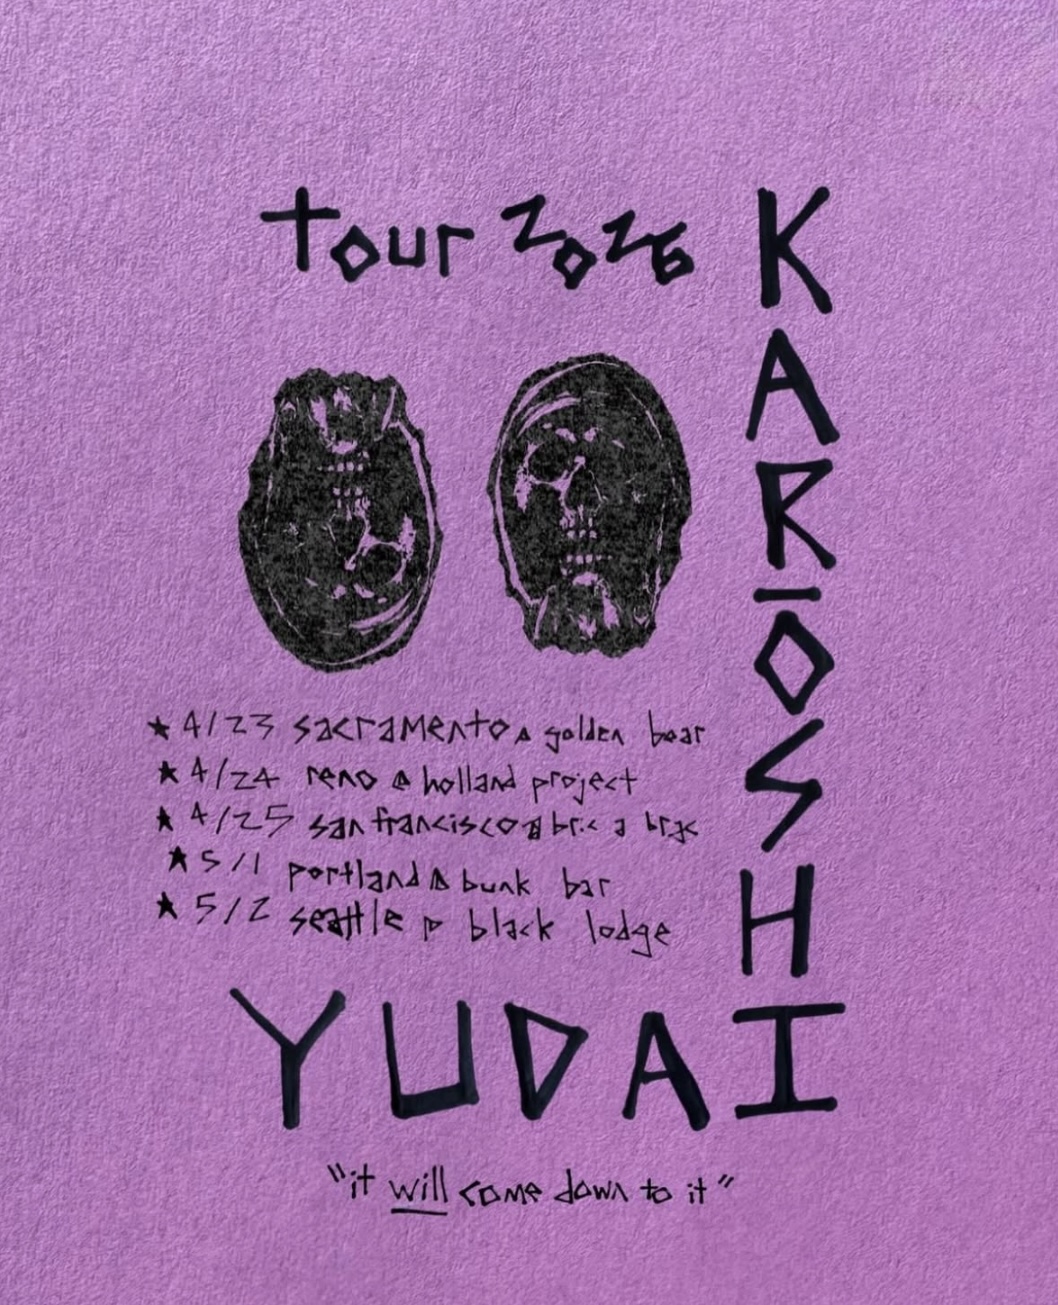 tour 2026
KARŌSHI
★ 4/23 sacramento @ golden bear
★ 4/24 reno @ holland project
★ 4/25 san francisco @ bric a brac
★ 5/1 portland @ bunk bar
★ 5/2 seattle @ black lodge
YUDAI
"it will come down to it"